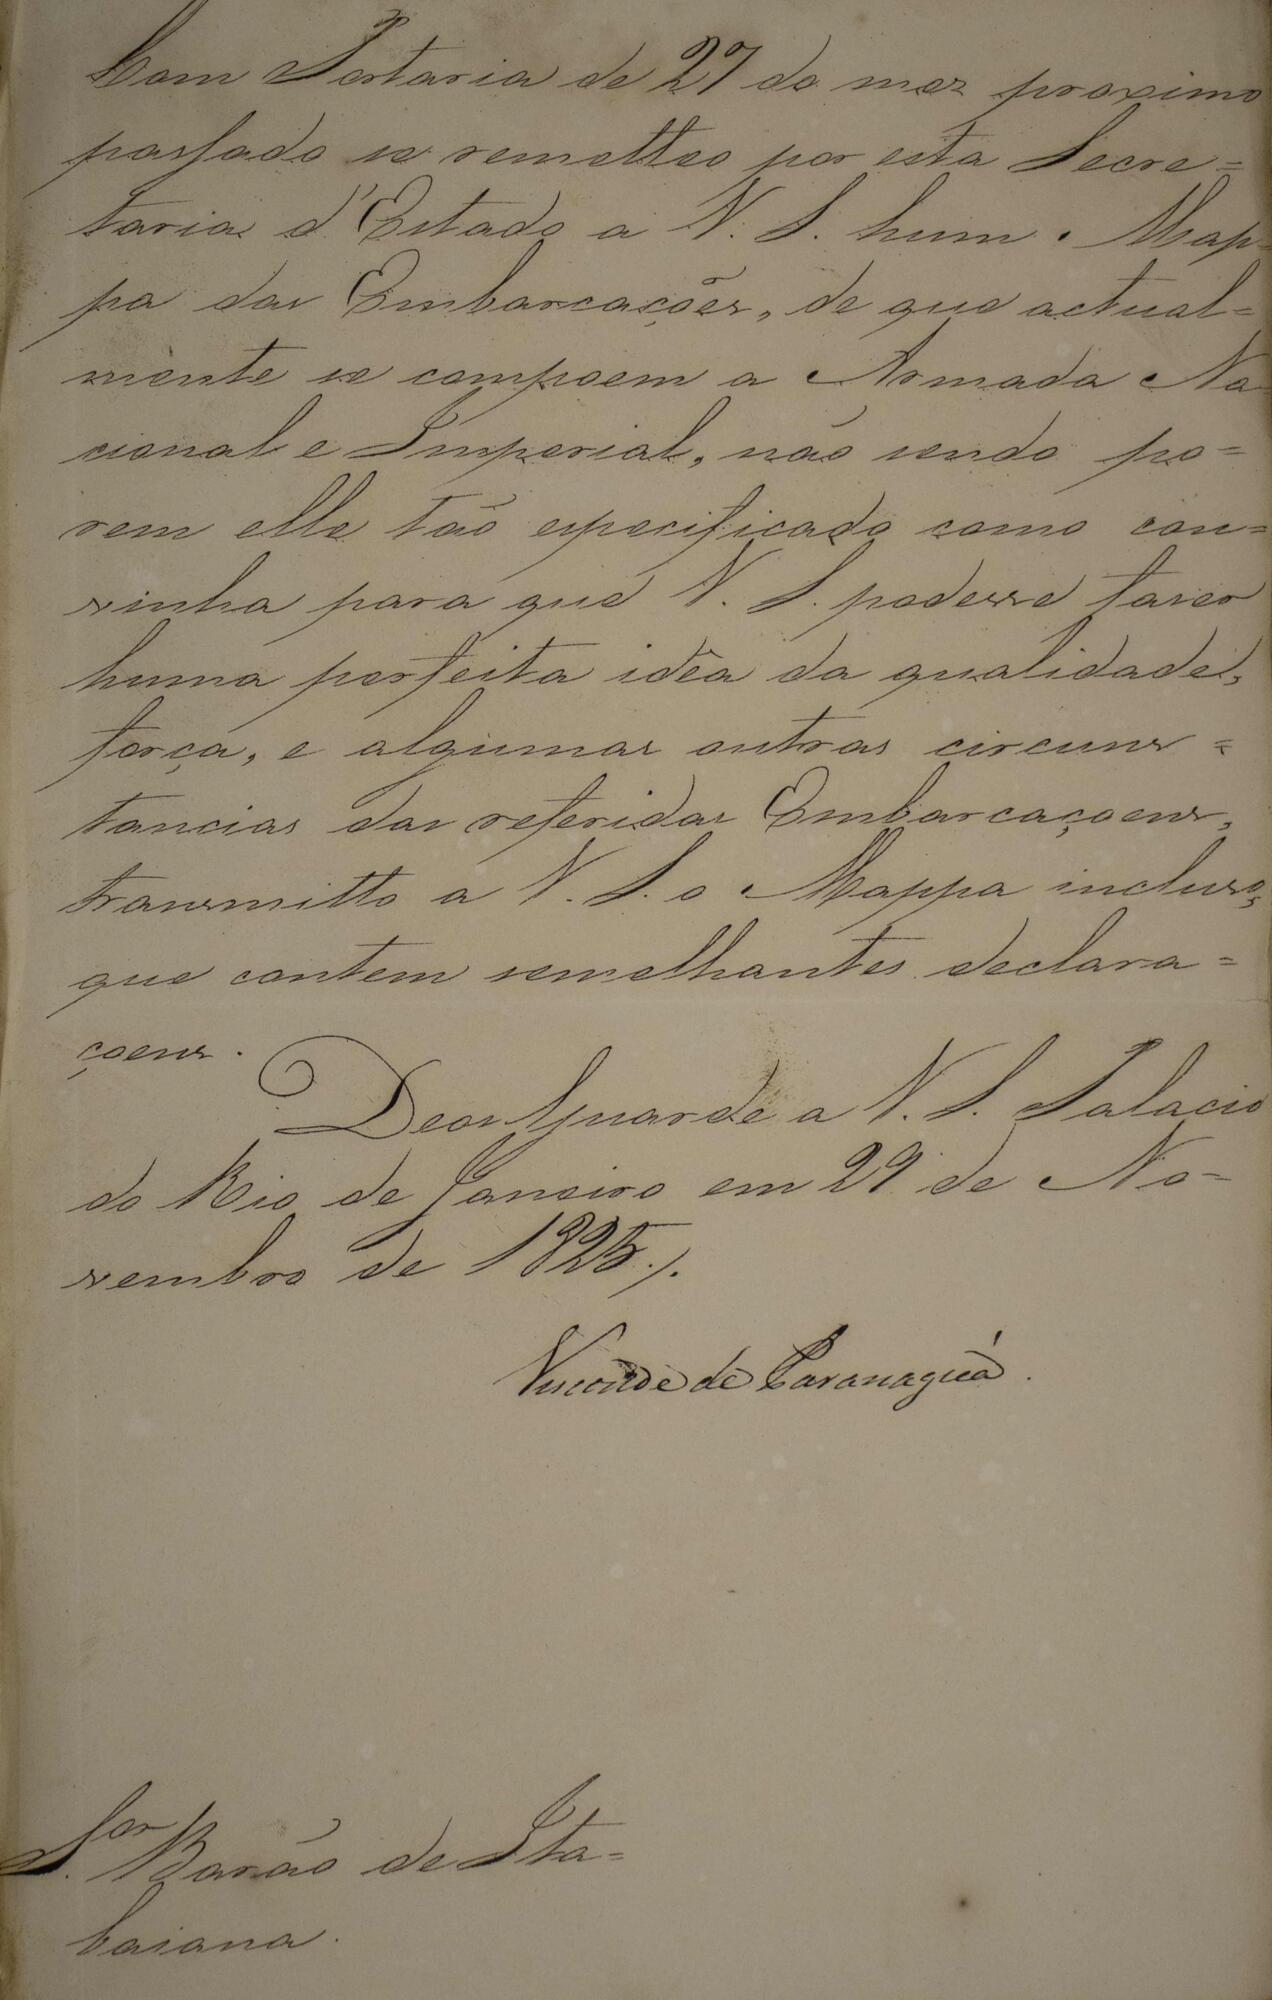 Com Portaria de 27 do mez proximo
passado se remetteo por esta Secre=
taria d'Estado a V. S. hum Map=
pa das Embarcações, de que actual=
mente se compoem a Armada Na
cional e Imperial, não sendo po=
rem elle tão especificado como con=
vinha para que V. S. podesse fazer
huma perfeita idêa da qualidade,
força, e algumas outras circuns=
tancias das referidas Embarcaçoens,
transmitto a V. S. o Mappa incluso,
que contem semelhantes declara=
çoens.
Deos Guarde a V. S. Palacio
do Rio de Janeiro em 29 de No=
vembro de 1825./.
Visconde de Paranaguá.
S.or Barão de Ita=
baiana.